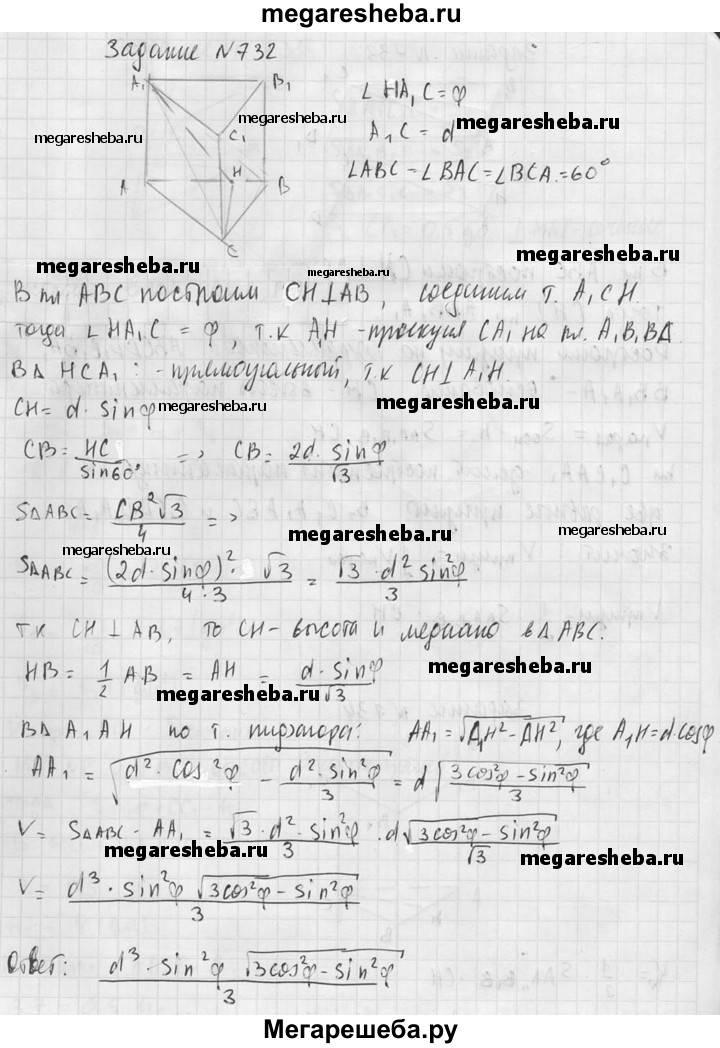 megaresheba.ru
Задание N732
A₁ B₁ C₁ A H B C
∠HA₁C = φ
megaresheba.ru
megaresheba.ru
A₁C = d
megaresheba.ru
∠ABC = ∠BAC = ∠BCA = 60°
megaresheba.ru
megaresheba.ru
megaresheba.ru
В пл ABC построим CH⊥AB, соединим т. A₁ C H.
тогда ∠HA₁C = φ, т.к A₁H - проекция CA₁ на пл. A₁B₁BA
В Δ HCA₁: - прямоугольный, т.к CH⊥A₁H.
CH = d · sinφ
megaresheba.ru
megaresheba.ru
CB = HC / sin60° => CB = 2d · sinφ / √3
SΔABC = CB²√3 / 4 =>
megaresheba.ru
megaresheba.ru
megaresheba.ru
SΔABC = (2d · sinφ)² · √3 / 4 · 3 = √3 · d² sin²φ / 3
т к CH ⊥ AB, то CH - высота и медиана в Δ ABC.
HB = 1/2 AB = AH = d · sinφ / √3
megaresheba.ru
megaresheba.ru
В Δ A₁AH по т. пифагора: AA₁ = √A₁H² - AH², где A₁H = d·cosφ
AA₁ = √d² · cos²φ - d² · sin²φ / 3 = d √3cos²φ - sin²φ / 3
V = SΔABC · AA₁ = √3 · d² · sin²φ / 3 · d√3cos²φ - sin²φ / √3
megaresheba.ru
megaresheba.ru
V = d³ · sin²φ √3cos²φ - sin²φ / 3
Ответ: d³ · sin²φ √3cos²φ - sin²φ / 3
Мегарешеба.ру